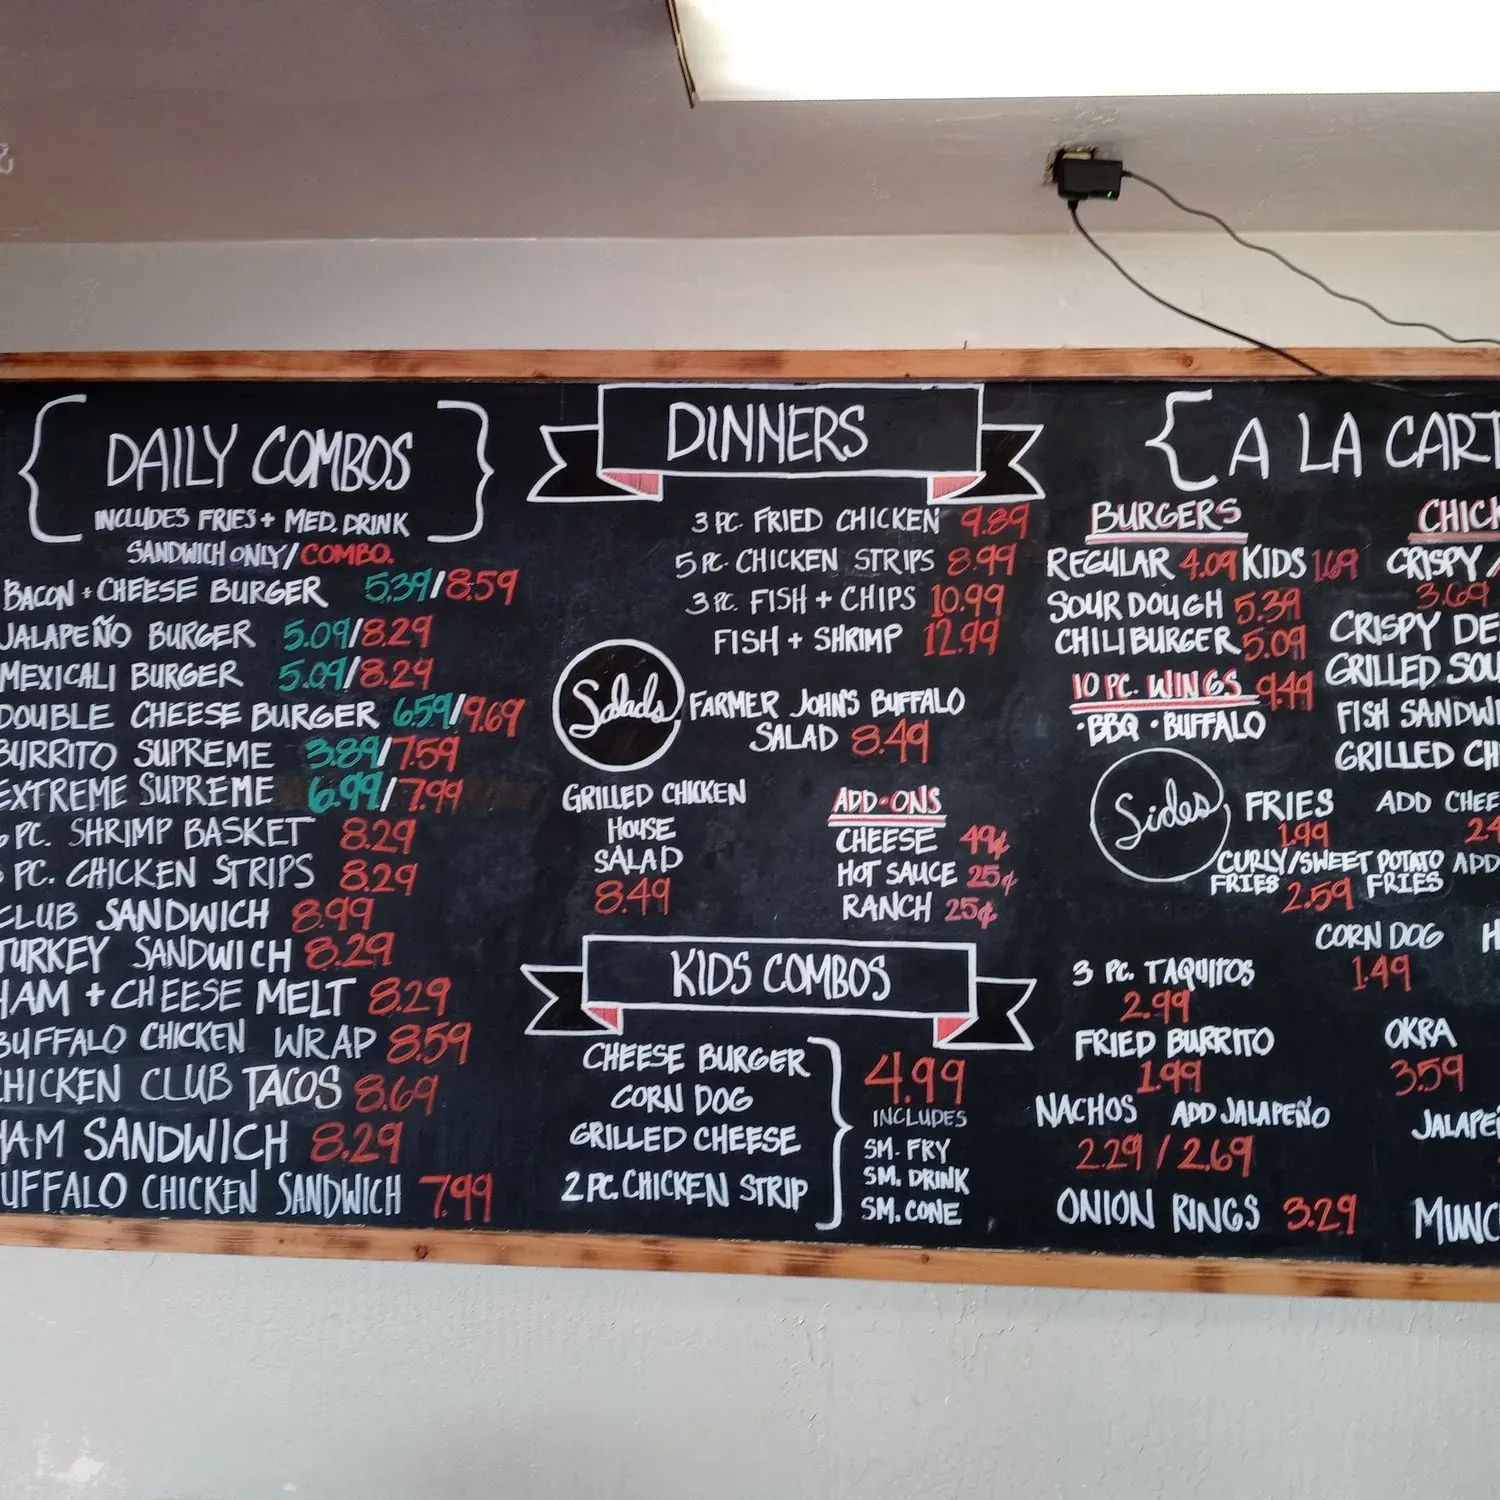 DAILY COMBOS
INCLUDES FRIES + MED. DRINK
SANDWICH ONLY/COMBO.
BACON + CHEESE BURGER 5.39/8.59
JALAPEÑO BURGER 5.09/8.29
MEXICALI BURGER 5.09/8.29
DOUBLE CHEESE BURGER 6.59/9.69
BURRITO SUPREME 3.89/7.59
EXTREME SUPREME 6.99/7.99
PC. SHRIMP BASKET 8.29
PC. CHICKEN STRIPS 8.29
CLUB SANDWICH 8.99
TURKEY SANDWICH 8.29
HAM + CHEESE MELT 8.29
BUFFALO CHICKEN WRAP 8.59
CHICKEN CLUB TACOS 8.69
HAM SANDWICH 8.29
UFFALO CHICKEN SANDWICH 7.99
DINNERS
3 PC. FRIED CHICKEN 9.89
5 PC. CHICKEN STRIPS 8.99
3 PC. FISH + CHIPS 10.99
FISH + SHRIMP 12.99
Salads
FARMER JOHN'S BUFFALO
SALAD 8.49
GRILLED CHICKEN
HOUSE
SALAD
8.49
ADD-ONS
CHEESE 49¢
HOT SAUCE 25¢
RANCH 25¢
KIDS COMBOS
CHEESE BURGER
CORN DOG
GRILLED CHEESE
2 PC. CHICKEN STRIP
4.99
INCLUDES
SM. FRY
SM. DRINK
SM. CONE
A LA CART
BURGERS
REGULAR 4.09 KIDS 1.69
SOUR DOUGH 5.39
CHILI BURGER 5.09
10 PC. WINGS 9.49
• BBQ • BUFFALO
CHICK
CRISPY /
3.69
CRISPY DE
GRILLED SOU
FISH SANDWI
GRILLED CH
Sides
FRIES ADD CHEE
1.99 24
CURLY/SWEET POTATO ADD
FRIES 2.59 FRIES
CORN DOG H
1.49
3 PC. TAQUITOS
2.99
FRIED BURRITO
1.99
OKRA
3.59
NACHOS ADD JALAPEÑO
2.29 / 2.69
JALAPE
ONION RINGS 3.29
MUNC